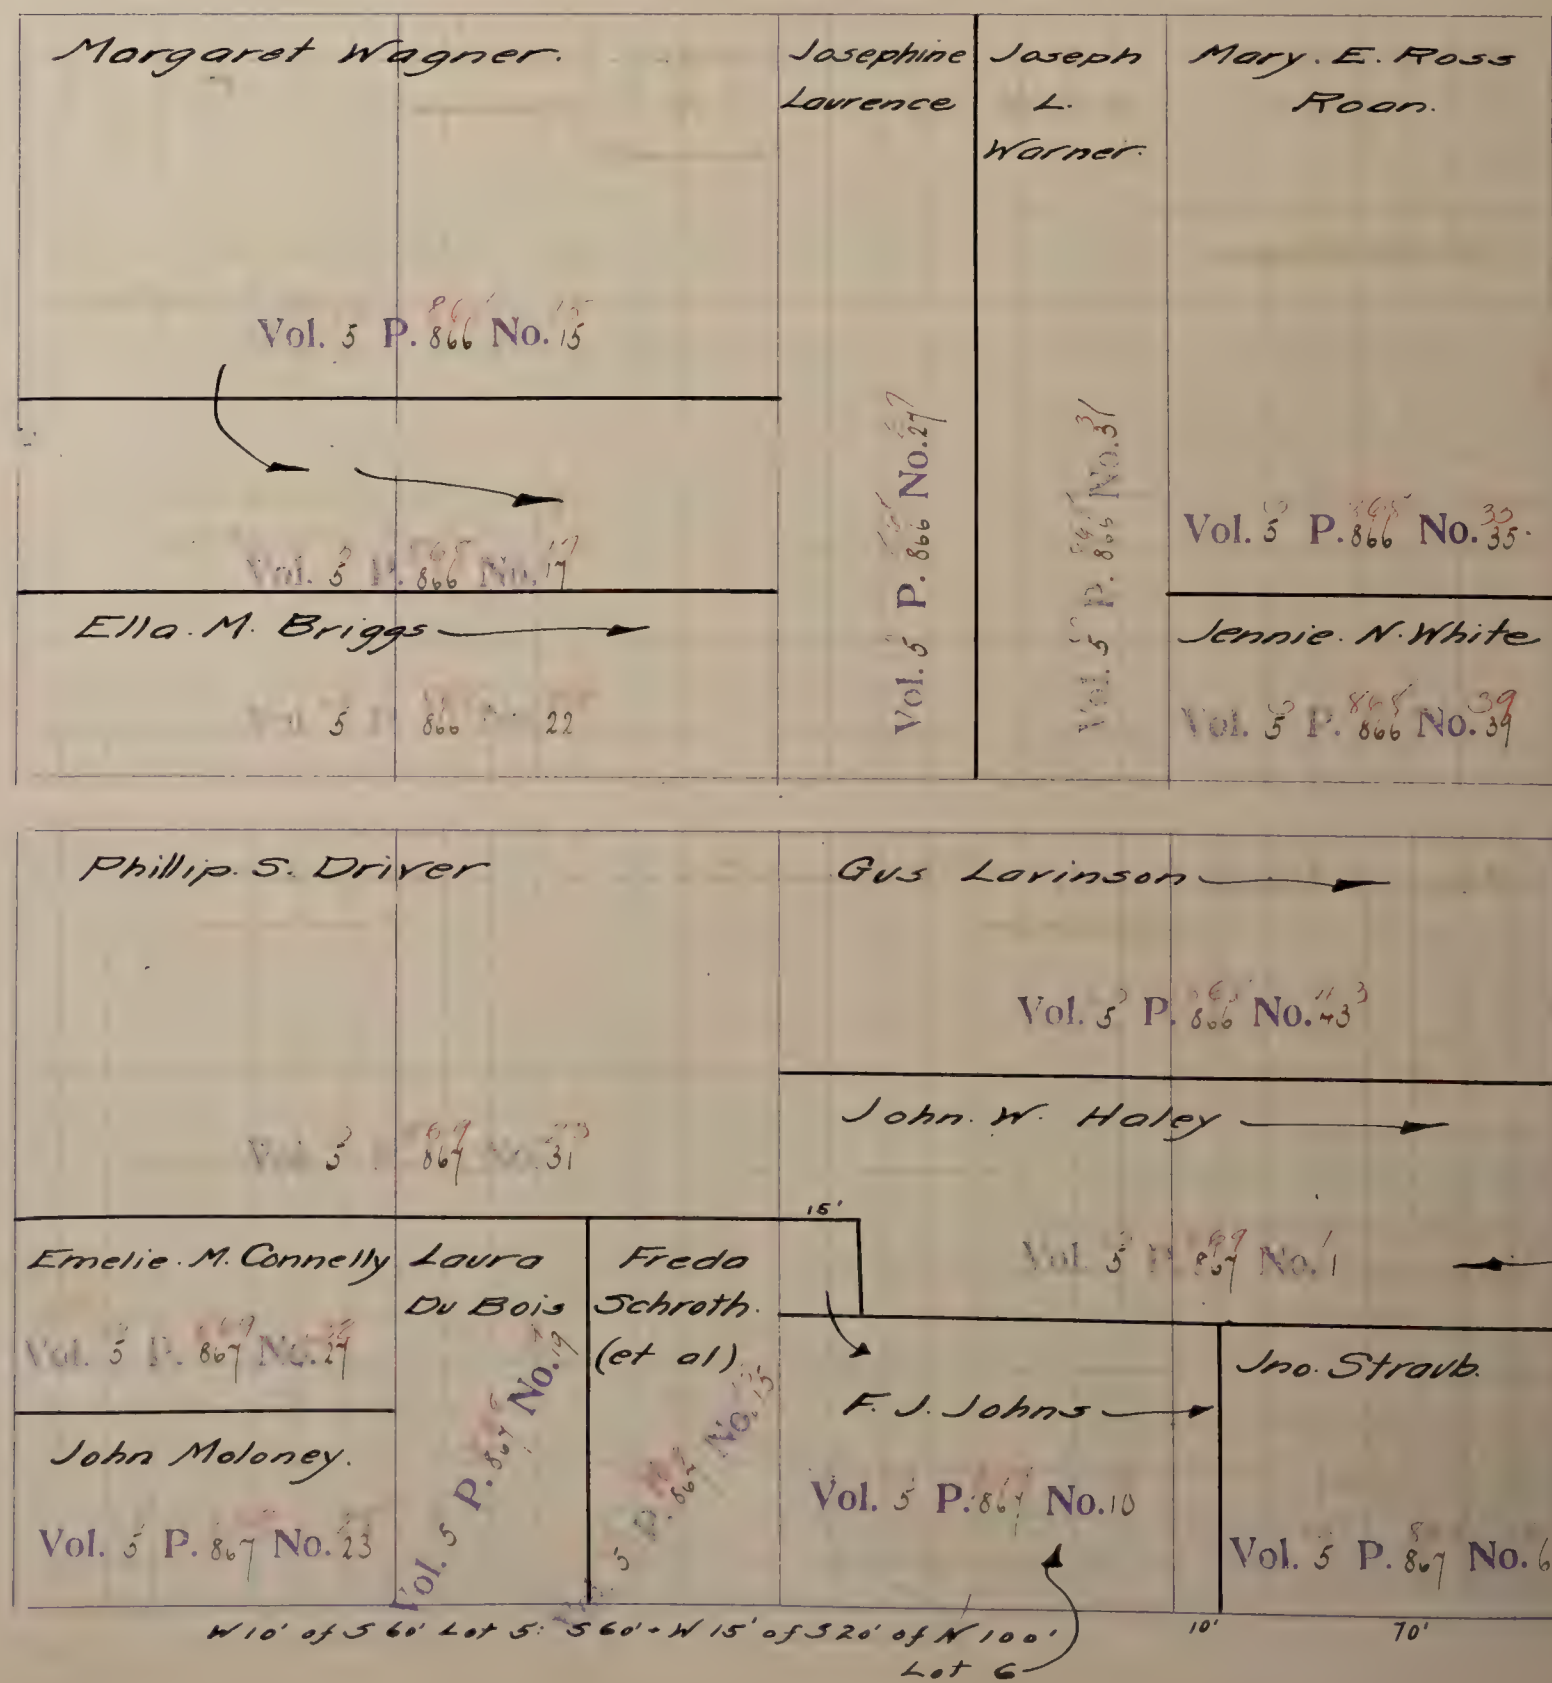 Margaret Wagner.
Vol. 5 P. 866 No. 15
Vol. 5 P. 866 No. 17
Ella. M. Briggs
5 866 22
Josephine
Laurence
Vol. 5 P. 866 No. 27
Joseph
L.
Warner.
Vol. 5 P. 866 No. 31
Mary. E. Ross
Roan.
Vol. 5 P. 866 No. 35.
Jennie. N. White
Vol. 5 P. 866 No. 39
Phillip. S. Driver
Vol. 5 867 No. 31
Gus Lavinson
Vol. 5 P. 866 No. 43
John. W. Haley
15'
Vol. 5 P. 867 No. 1
Emelie. M. Connelly
Vol. 5 P. 867 No. 27
John Moloney.
Vol. 5 P. 867 No. 23
Laura
Du Bois
Vol. 5 P. 867 No. 19
Freda
Schroth.
(et al)
5 P. 867 No. 15
F. J. Johns
Vol. 5 P. 867 No. 10
Jno. Straub.
Vol. 5 P. 867 No. 6
W 10' of S 60' Lot 5: S 60' + W 15' of S 20' of N 100'
Lot 6
10'
70'